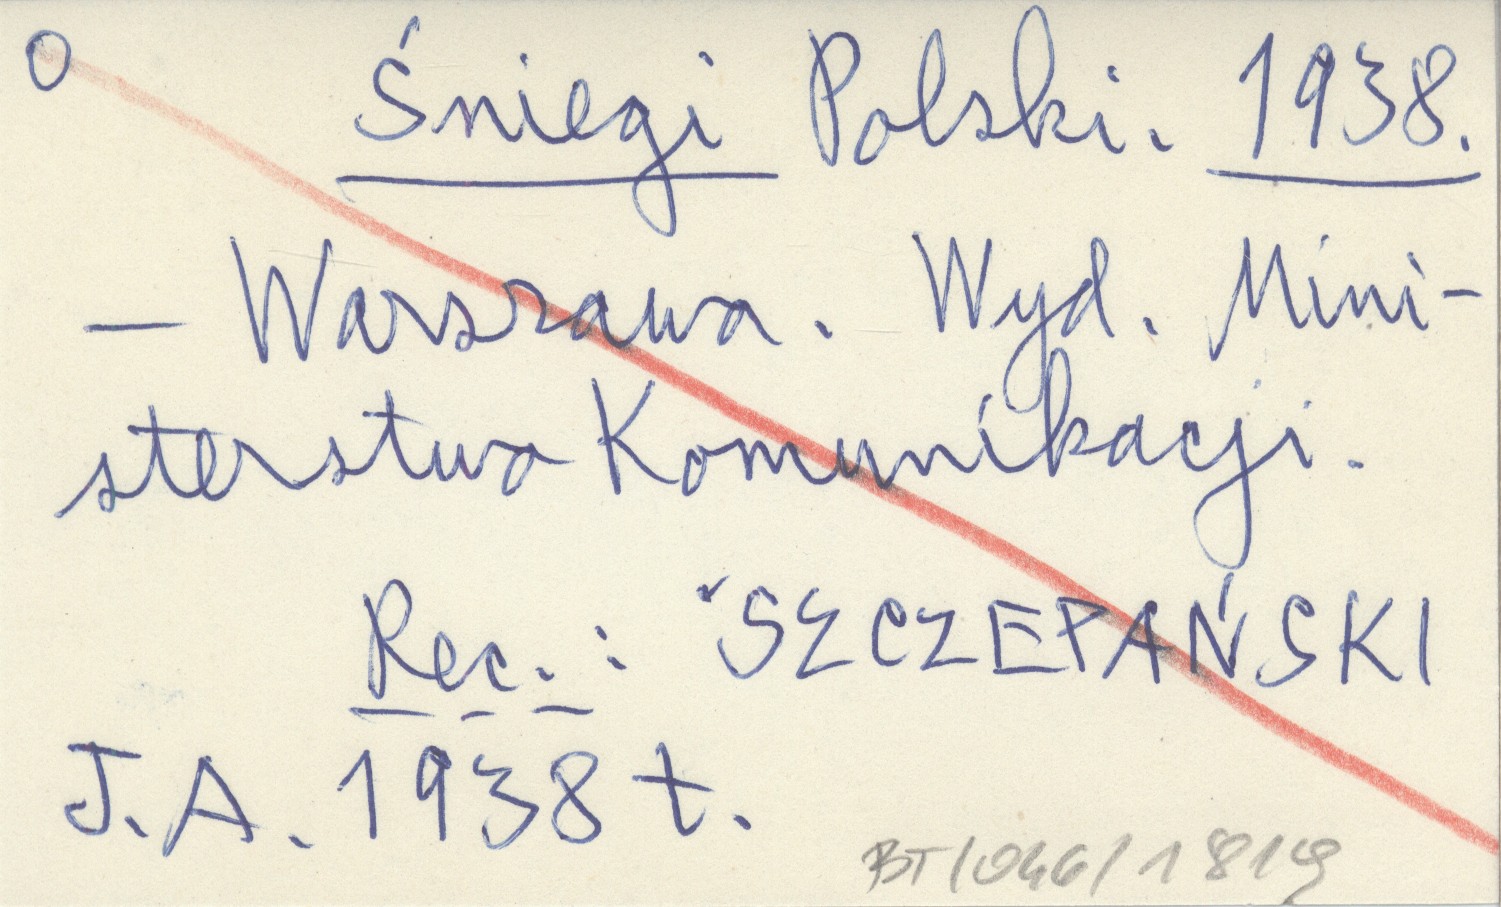 o Śniegi Polski. 1938.
— Warszawa. Wyd. Mini-
sterstwa Komunikacji.
Rec. : SZCZEPAŃSKI
J.A. 1938 t.
BT/046/1819